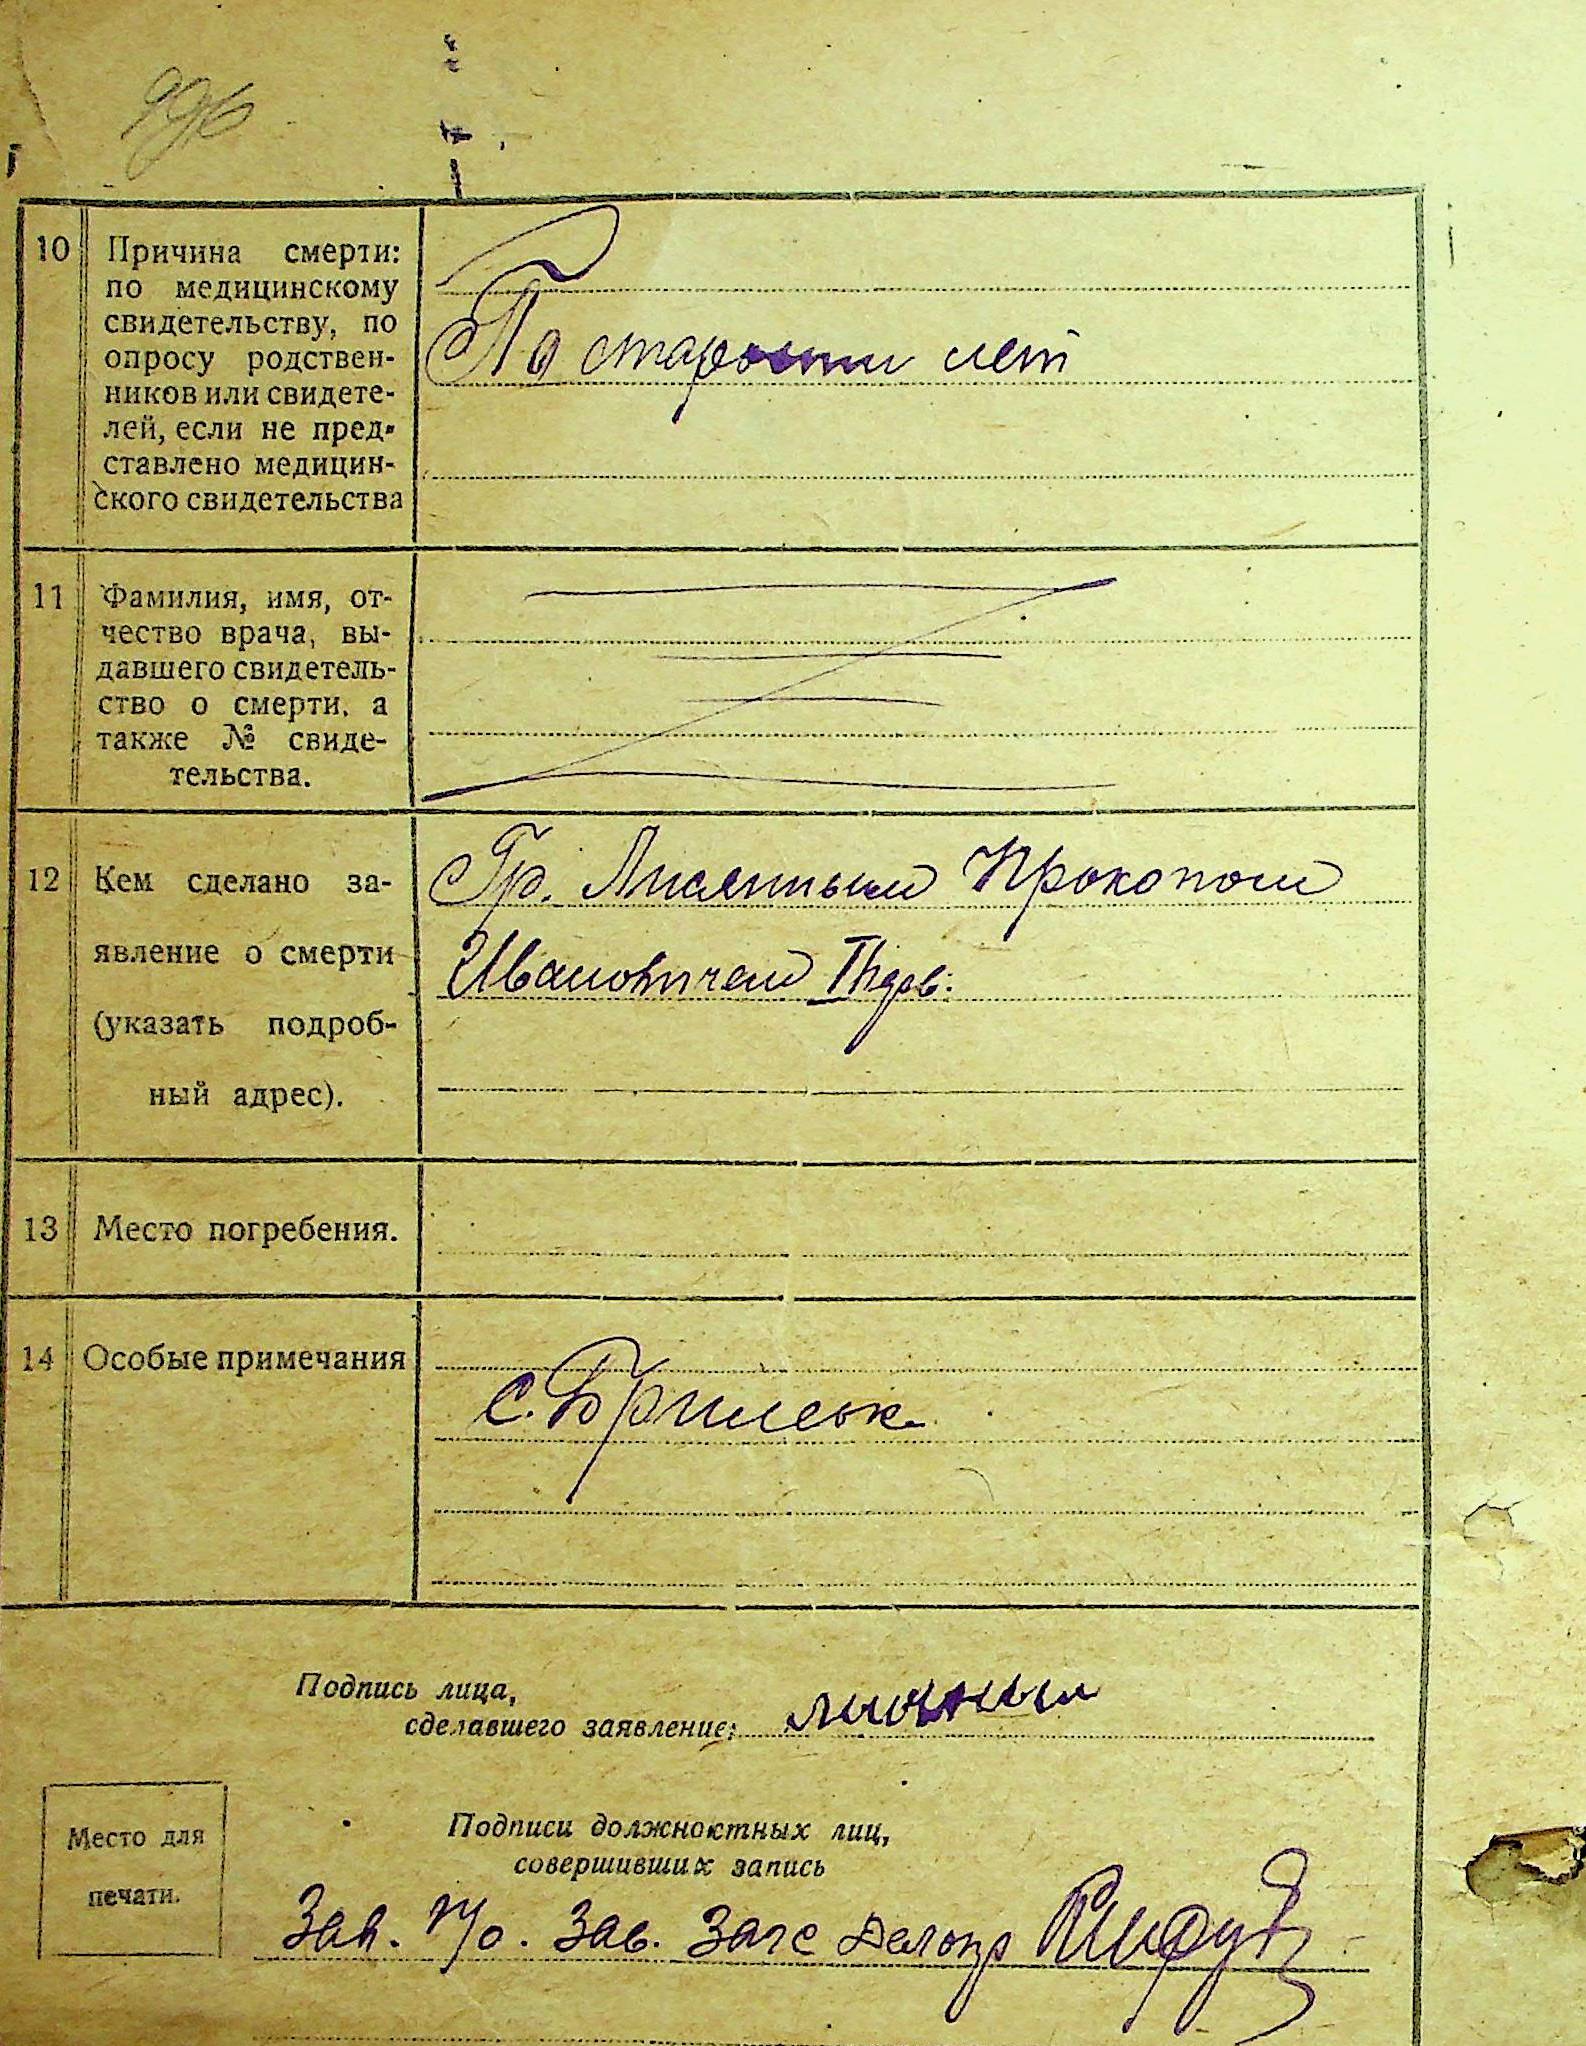 996
10 Причина смерти:
по медицинскому
свидетельству, по
опросу родствен-
ников или свидете-
лей, если не пред-
ставлено медицин-
ского свидетельства
По старости лет
11 Фамилия, имя, от-
чество врача, вы-
давшего свидетель-
ство о смерти, а
также № свиде-
тельства.
12 Кем сделано за-
явление о смерти
(указать подроб-
ный адрес).
Гр. Прокопом
Ивановичем
13 Место погребения.
14 Особые примечания
с.
Подпись лица,
сделавшего заявление:
Место для
печати.
Подписи должностных лиц,
совершивших запись
Зав. Загс